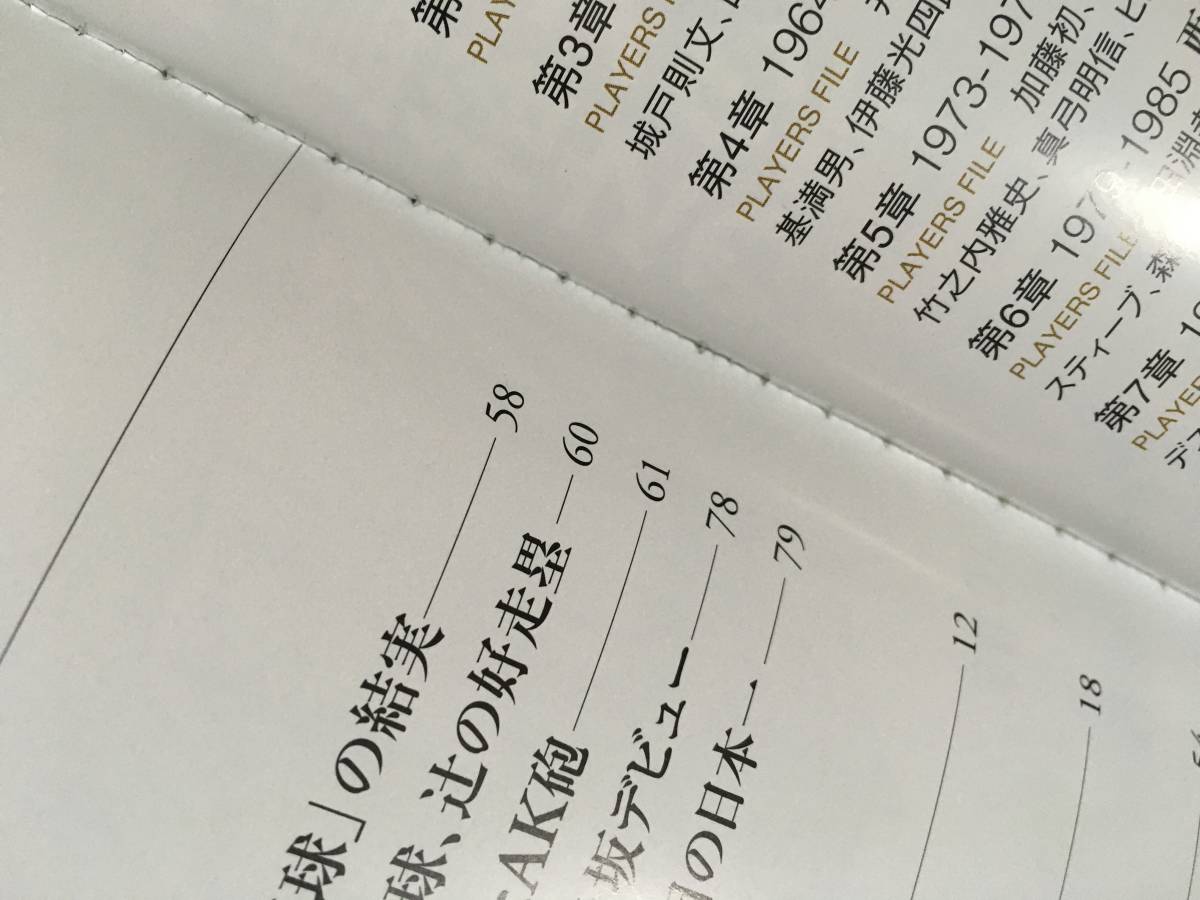 第
PLAYERS
第3章
PLAYERS
城戸則文、
第4章 1964
PLAYERS FILE
基満男、伊藤光四
第5章 1973-197
PLAYERS FILE 加藤初、
竹之内雅史、真弓明信、
第6章 1979-1985
PLAYERS FILE
スティーブ、森
第7章
PLAYER
球」の結実 58
球、辻の好走塁 60
AK砲 61
坂デビュー 78
の日本一 79
12
18